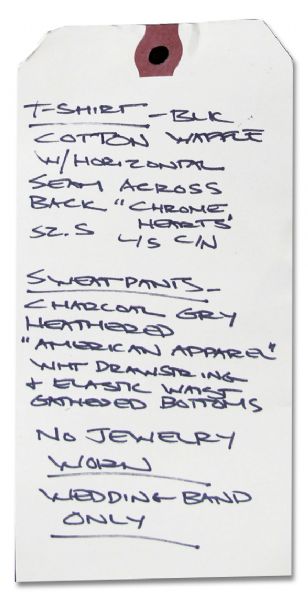 T-SHIRT - BLK
COTTON WAFFLE
W/HORIZONTAL
SEAM ACROSS
BACK "CHROME
HEARTS"
SZ.S L/S C/N
SWEATPANTS -
CHARCOAL GRY
HEATHERED
"AMERICAN APPAREL"
WHT DRAWSTRING
& ELASTIC WAIST
GATHERED BOTTOMS
NO JEWELRY
WORN
WEDDING BAND
ONLY